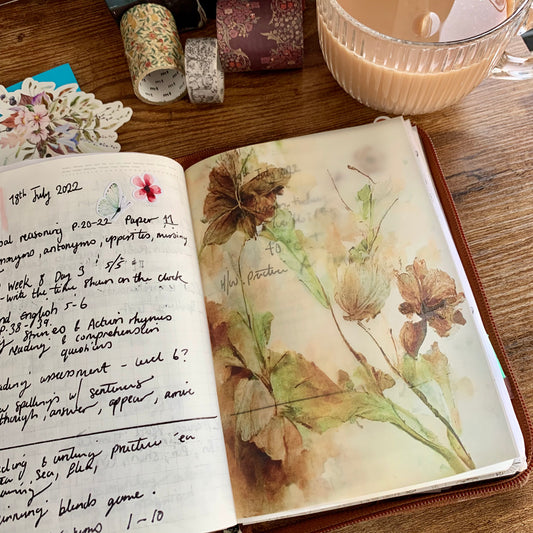 18th July 2022
bal reasoning P.20-22 Paper 11
nonyms, antonyms, opposites, missing
Week 8 Day 3 ! 5/5
- write the time shown on the clock
nd English 5-6
P.38-39.
g Stories & Action rhymes
reading & comprehension
questions
ading assessment - level 6?
w spellings w/ sentences
though, answer, appear, arrive
ding & writing practice 'ea
ea, sea, flea,
inning blends game.
tions 1-10
to
H/W. Practice